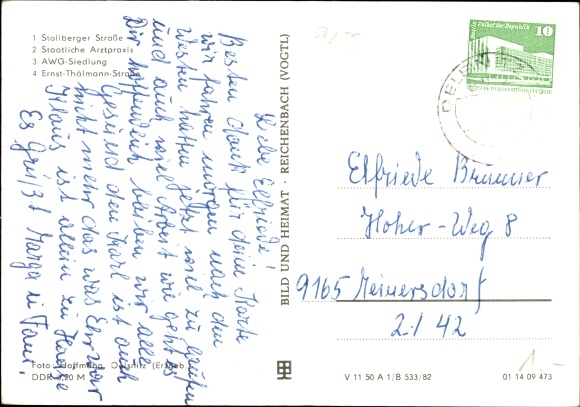 1 Stollberger Straße
2 Staatliche Arztpraxis
3 AWG-Siedlung
4 Ernst-Thälmann-Straße
Liebe Elfriede!
Besten dank für dein Karte
wir fahren morgen nach den
Westen haten jetzt viel zu
und auch viel Arbeit wie geht es
Dir hoffendlich bleiben wir alle
Gesund den Karl ist auch
nicht mehr das was Er war
Klaus ist allein zu Hause
Es Grüßt Marga u Fam!
Foto: Hoffmann, Oelsnitz (Erzgeb.)
DDR 0,20 M
BILD UND HEIMAT · REICHENBACH (VOGTL)
V 11 50 A 1/B 533/82
01 14 09 473
Berlin Palast der Republik
10
Elfriede Brunner
Hoher-Weg 8
9165 Meinersdorf
21 42
1-